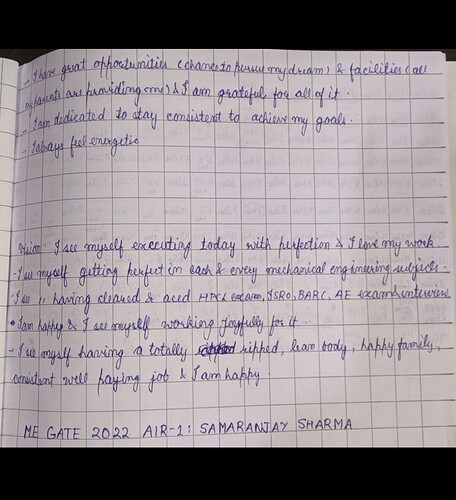 - I have great opportunities (chance to pursue my dream) & facilities (all
my parents are providing me) & I am grateful for all of it.
- I am dedicated to stay consistent to achieve my goals.
- I always feel energetic
Vision: I see myself executing today with perfection & I love my work.
- I see myself getting perfect in each & every mechanical engineering subjects.
- I see " having cleared & aced HPCL exam, ISRO, BARC, AE exam & interview
• I am happy & I see myself working joyfully for it.
- I see myself having a totally ripped, lean body, happy family,
consistent well paying job & I am happy.
ME GATE 2022 AIR-1: SAMARANJAY SHARMA